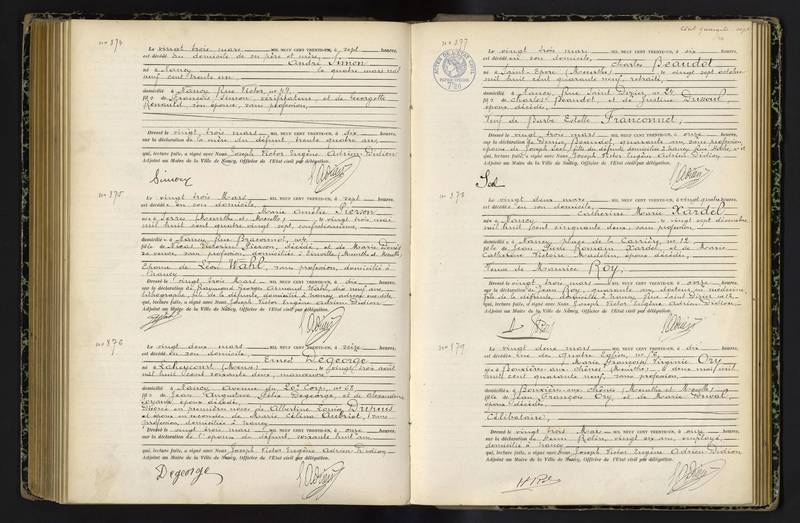 no 874
Le vingt trois mars MIL NEUF CENT TRENTE-UN, à sept heures,
est décédé au domicile de ses père et mère,
André Simon
né à Nancy le quatre mars mil
neuf cent trente un
domicilié à Nancy Rue Victor, no 49
fils de François Simon, vérificateur, et de Georgette
Renauld, son épouse, sans profession,
Dressé le vingt trois mars MIL NEUF CENT TRENTE-UN, à dix heures,
sur la déclaration de la mère du défunt, trente quatre ans,
qui, lecture faite, a signé avec Nous Joseph Victor Eugène Adrien Didion
Adjoint au Maire de la Ville de Nancy, Officier de l'Etat civil par délégation.
Simon
no 875
Le vingt trois Mars MIL NEUF CENT TRENTE-UN, à sept heures,
est décédée en son domicile,
Marie Amélie Pierson
née à Serres (Meurthe et Moselle), le vingt trois mai
mil huit cent quatre vingt sept, confectionneuse,
domiciliée à Nancy Rue Braconnot, no 4
fille de Nicolas Victorin Pierson, décédé, et de Marie
sa veuve, sans profession, domiciliée à (Meurthe et Moselle)
Epouse de Léon Wahl, sans profession, domicilié à
Nancy
Dressé le vingt trois Mars MIL NEUF CENT TRENTE-UN, à dix heures,
sur la déclaration de Raymond Georges Armand Wahl, dix neuf ans,
lithographe, fils de la défunte, domicilié à Nancy,
qui, lecture faite, a signé avec Nous Joseph Victor Eugène Adrien Didion
Adjoint au Maire de la Ville de Nancy, Officier de l'Etat civil par délégation.
no 876
Le vingt deux mars MIL NEUF CENT TRENTE-UN, à seize heures,
est décédé en son domicile,
Ernest Degeorge
né à Laheycourt (Meuse) le vingt trois août
mil huit cent soixante deux, manœuvre
domicilié à Nancy Avenue du 20e Corps, no 68
fils de Jean Augustin Félix Degeorge, et de Alexandrine
époux décédés,
Divorcé en premières noces de Albertine Louise Dupuis
et époux en secondes de Marie Célina Aubriot, sans
profession, domiciliée à Nancy
Dressé le vingt trois mars MIL NEUF CENT TRENTE-UN, à onze heures,
sur la déclaration de l'épouse du défunt, soixante huit ans
qui, lecture faite, a signé avec Nous Joseph Victor Eugène Adrien Didion
Adjoint au Maire de la Ville de Nancy, Officier de l'Etat civil par délégation.
Degeorge
Cent quarante sept
no 877
Le vingt trois mars MIL NEUF CENT TRENTE-UN, à six heures,
est décédé en son domicile,
Charles Beaudot
né à Saint-Epvre (Meurthe) le vingt sept octobre
mil huit cent quarante neuf, retraité,
domicilié à Nancy Rue Saint Dizier, no 24
fils de Charles Beaudot, et de Justine
époux décédés,
Veuf de Barbe Estelle Franconnet,
Dressé le vingt trois mars MIL NEUF CENT TRENTE-UN, à onze heures,
sur la déclaration de Beaudot, quarante ans, sans profession,
fils du défunt, domiciliée à Nancy
qui, lecture faite, a signé avec Nous Joseph Victor Eugène Adrien Didion
Adjoint au Maire de la Ville de Nancy, Officier de l'Etat civil par délégation.
no 878
Le vingt deux mars MIL NEUF CENT TRENTE-UN, à vingt quatre heures,
est décédée en son domicile,
Catherine Marie Xardel
née à Nancy le vingt sept décembre
mil huit cent cinquante deux, sans profession,
domiciliée à Nancy, place de la Carrière, no 12
fille de Jean Pierre Romain Xardel, et de Marie
Catherine Victoire Madelin, époux décédés,
Veuve de Maurice Roy,
Dressé le vingt trois mars MIL NEUF CENT TRENTE-UN, à onze heures,
sur la déclaration de Jean Roy, quarante ans, docteur en médecine,
fils de la défunte, domicilié à Nancy, Rue Saint Dizier
qui, lecture faite, a signé avec Nous Joseph Victor Eugène Adrien Didion
Adjoint au Maire de la Ville de Nancy, Officier de l'Etat civil par délégation.
no 879
Le vingt deux mars MIL NEUF CENT TRENTE-UN, à onze heures,
est décédée rue des Quatre Eglises,
Marie Françoise Virginie Ory
née à Bouxières-aux-chênes (Meurthe) le deux mai mil
huit cent quarante neuf, sans profession,
domiciliée à Bouxières-aux-chênes (Meurthe et Moselle)
fille de Jean François Ory, et de Marie Duval,
époux décédés,
Célibataire,
Dressé le vingt trois Mars MIL NEUF CENT TRENTE-UN, à onze heures,
sur la déclaration de Henri Rolin, vingt six ans, employé,
domicilié à Nancy
qui, lecture faite, a signé avec Nous Joseph Victor Eugène Adrien Didion
Adjoint au Maire de la Ville de Nancy, Officier de l'Etat civil par délégation.